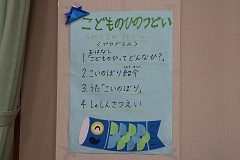 こどものひのつどい
<プログラム>
1.おはなし「こどものひってどんなひ?」
2.こいのぼり紹介
3.うた「こいのぼり」
4.しゃしんさつえい